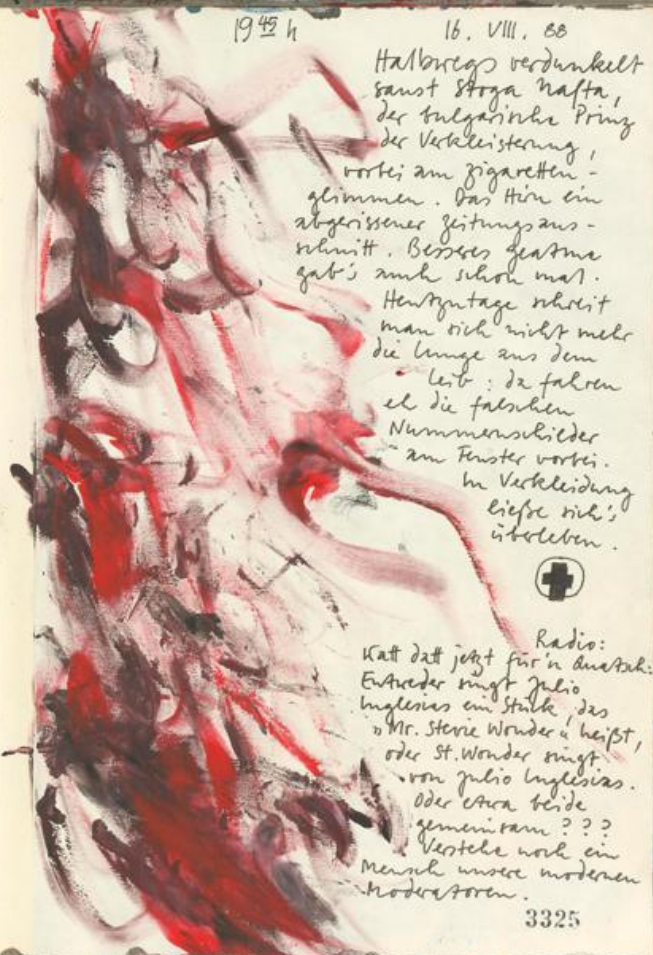 19 45 h 16. VIII. 88
Halbwegs verdunkelt
saust Stoga Nafta,
der bulgarische Prinz
der Verkleisterung,
vorbei am Zigaretten-
glimmen. Das Hirn ein
abgerissener Zeitungsaus-
schnitt. Besseres
gab's auch schon mal.
Heutzutage schreit
man sich nicht mehr
die Lunge aus dem
Leib: da fahren
eh die falschen
Nummernschilder
am Fenster vorbei.
In Verkleidung
ließe sich's
überleben.
Radio:
Watt datt jetzt für'n Quatsch:
Entweder singt Julio
Inglesias ein Stück, das
»Mr. Stevie Wonder« heißt,
oder St. Wonder singt
von Julio Inglesias.
Oder etwa beide
gemeinsam ? ? ?
Verstehe noch ein
Mensch unsere modernen
Moderatoren.
3325